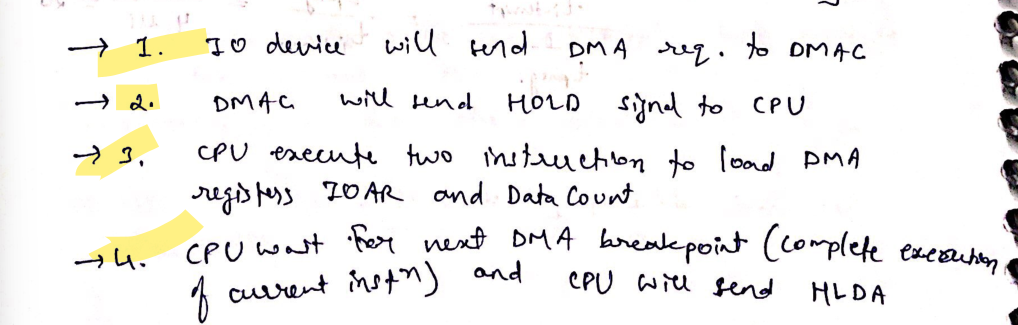 → 1. IO device will send DMA req. to DMAC
→ 2. DMAC will send HOLD signal to CPU
→ 3. CPU execute two instruction to load DMA
registers IOAR and Data Count
→ 4. CPU wait for next DMA breakpoint (complete execution
of current instn) and CPU will send HLDA